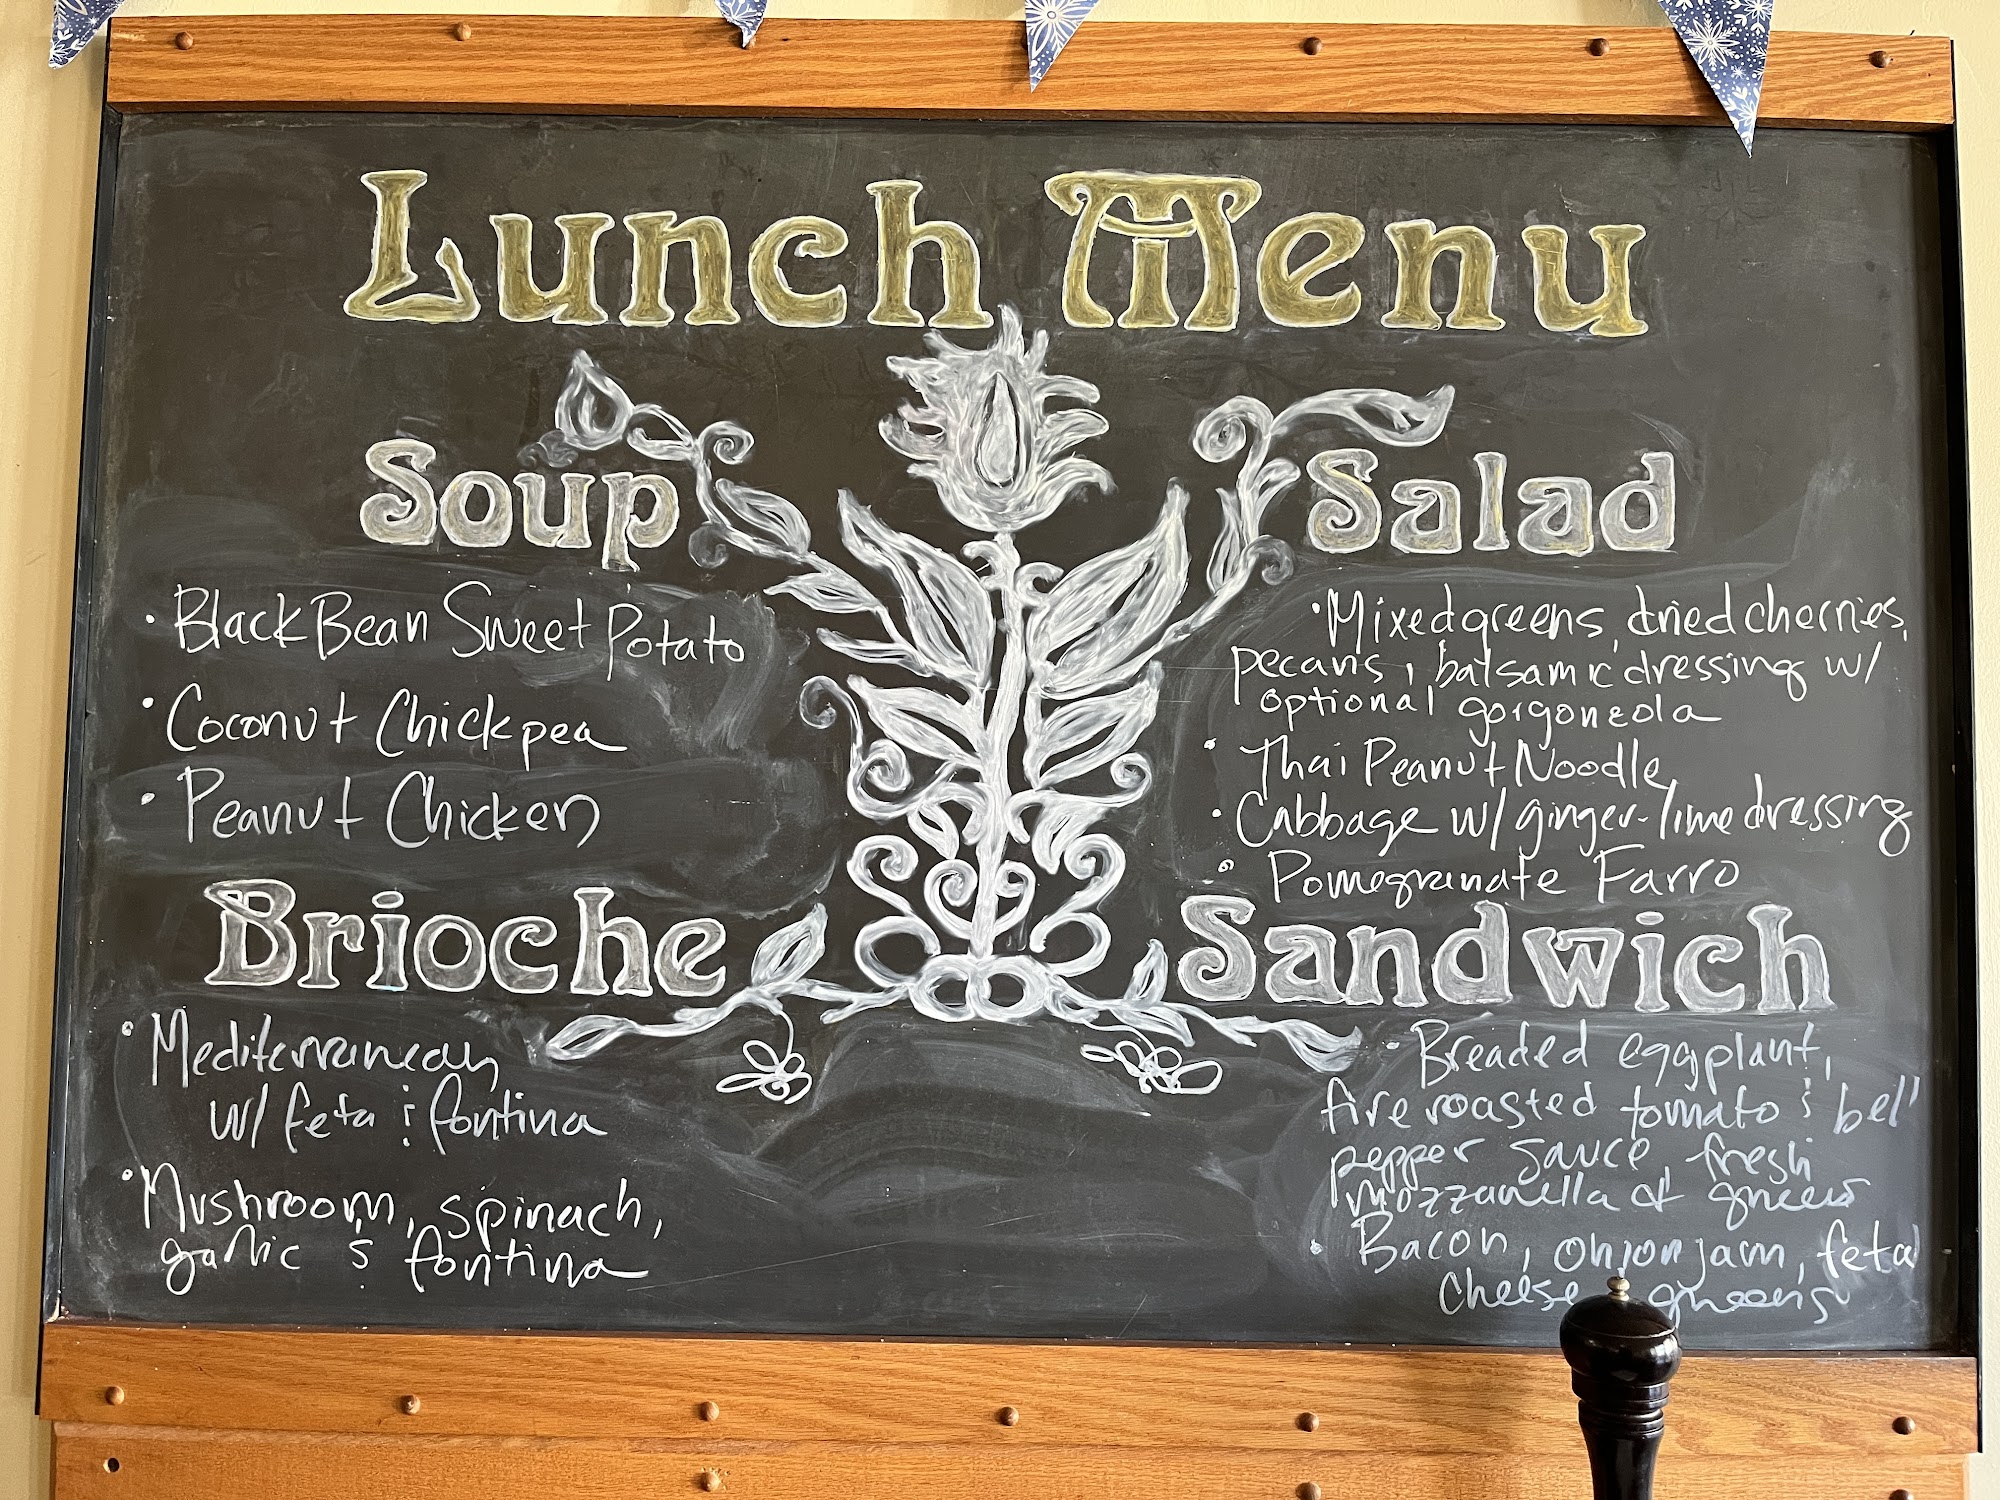 Lunch Menu
Soup
• Black Bean Sweet Potato
• Coconut Chickpea
• Peanut Chicken
Salad
• Mixed greens, dried cherries,
pecans, balsamic dressing w/
optional gorgonzola
• Thai Peanut Noodle
• Cabbage w/ ginger-lime dressing
• Pomegranate Farro
Brioche
• Mediterranean
w/ feta & fontina
• Mushroom, spinach,
garlic & fontina
Sandwich
• Breaded eggplant,
fire roasted tomato & bell
pepper sauce, fresh
mozzarella & greens
• Bacon, onion jam, feta
cheese greens